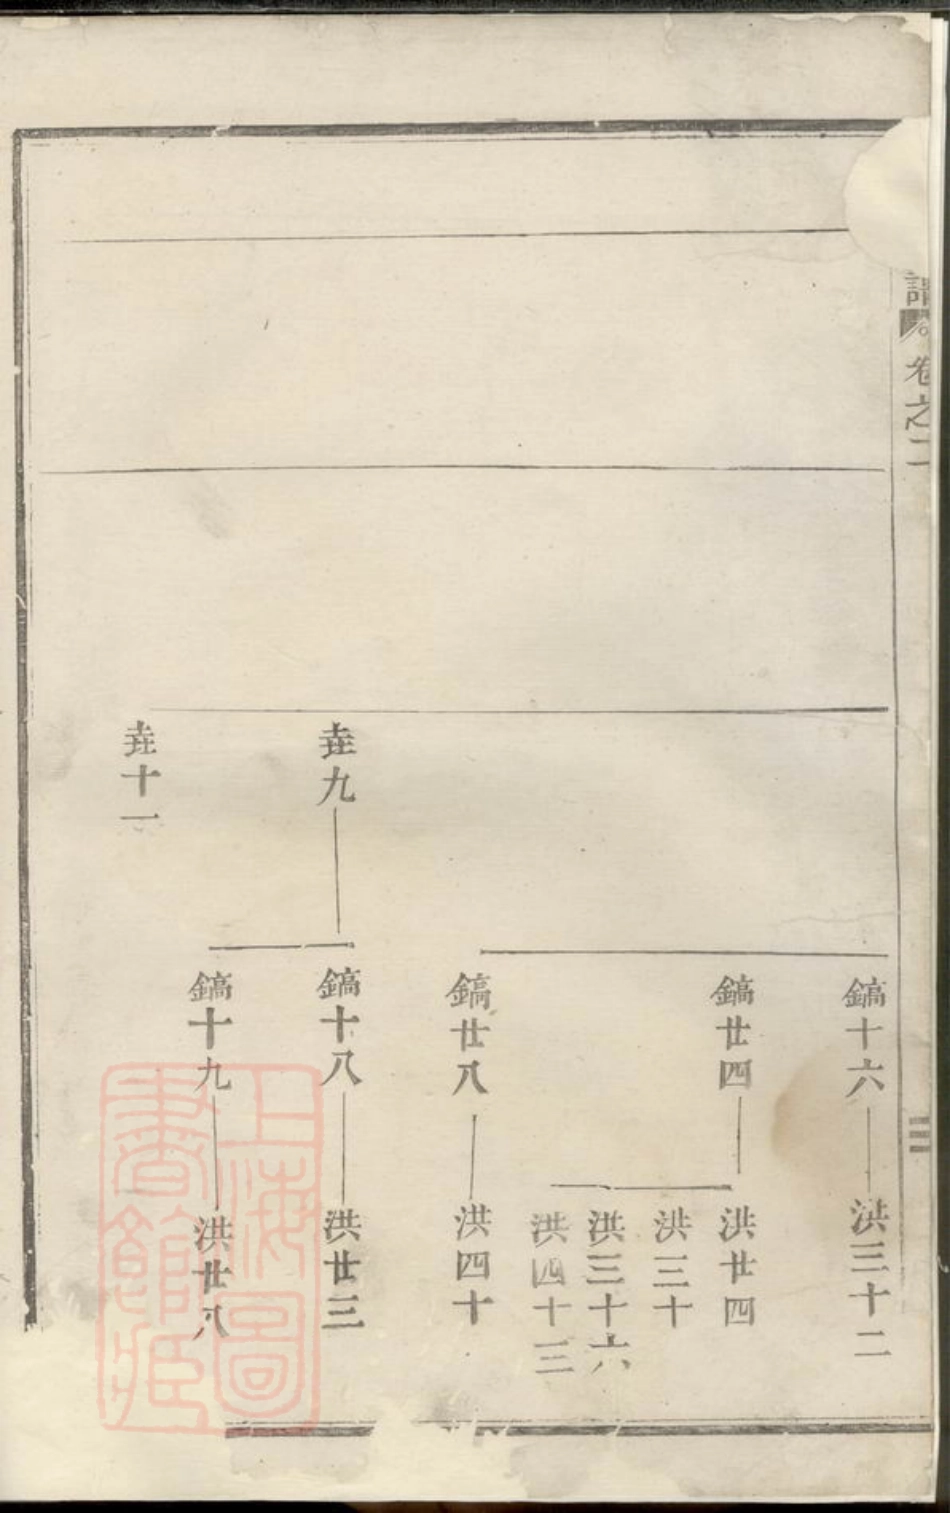 譜
卷之二
三
鎬十六
洪三十二
鎬廿四
洪廿四
洪三十
洪三十六
洪四十三
鎬廿八
洪四十
垚九
鎬十八
洪廿三
鎬十九
洪廿八
垚十一
上海圖
書館藏